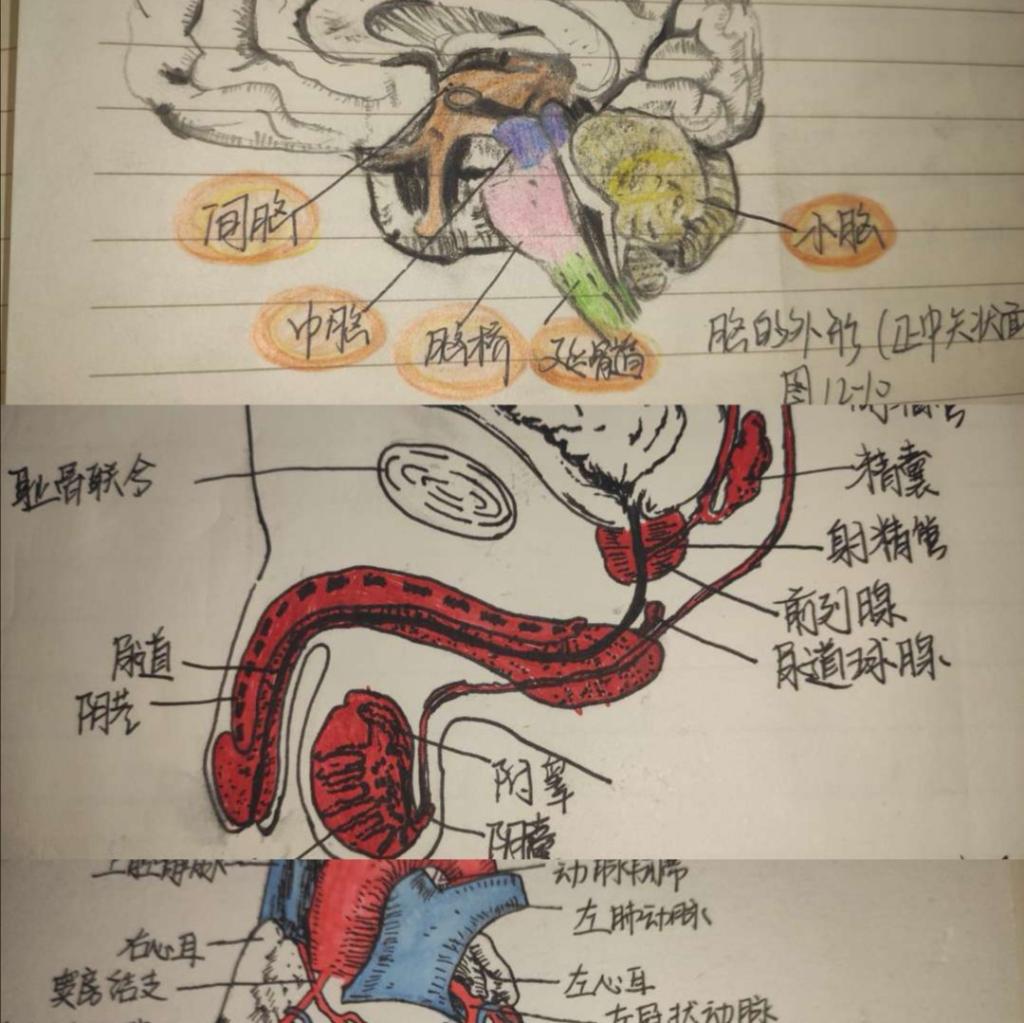 间脑
小脑
中脑
脑桥
延髓
脑的外形(正中矢状面
图12-10
耻骨联合
精囊
射精管
前列腺
尿道球腺
尿道
阴茎
附睾
阴囊
上腔静脉
动脉韧带
左肺动脉
右心耳
窦房结支
左心耳
左冠状动脉